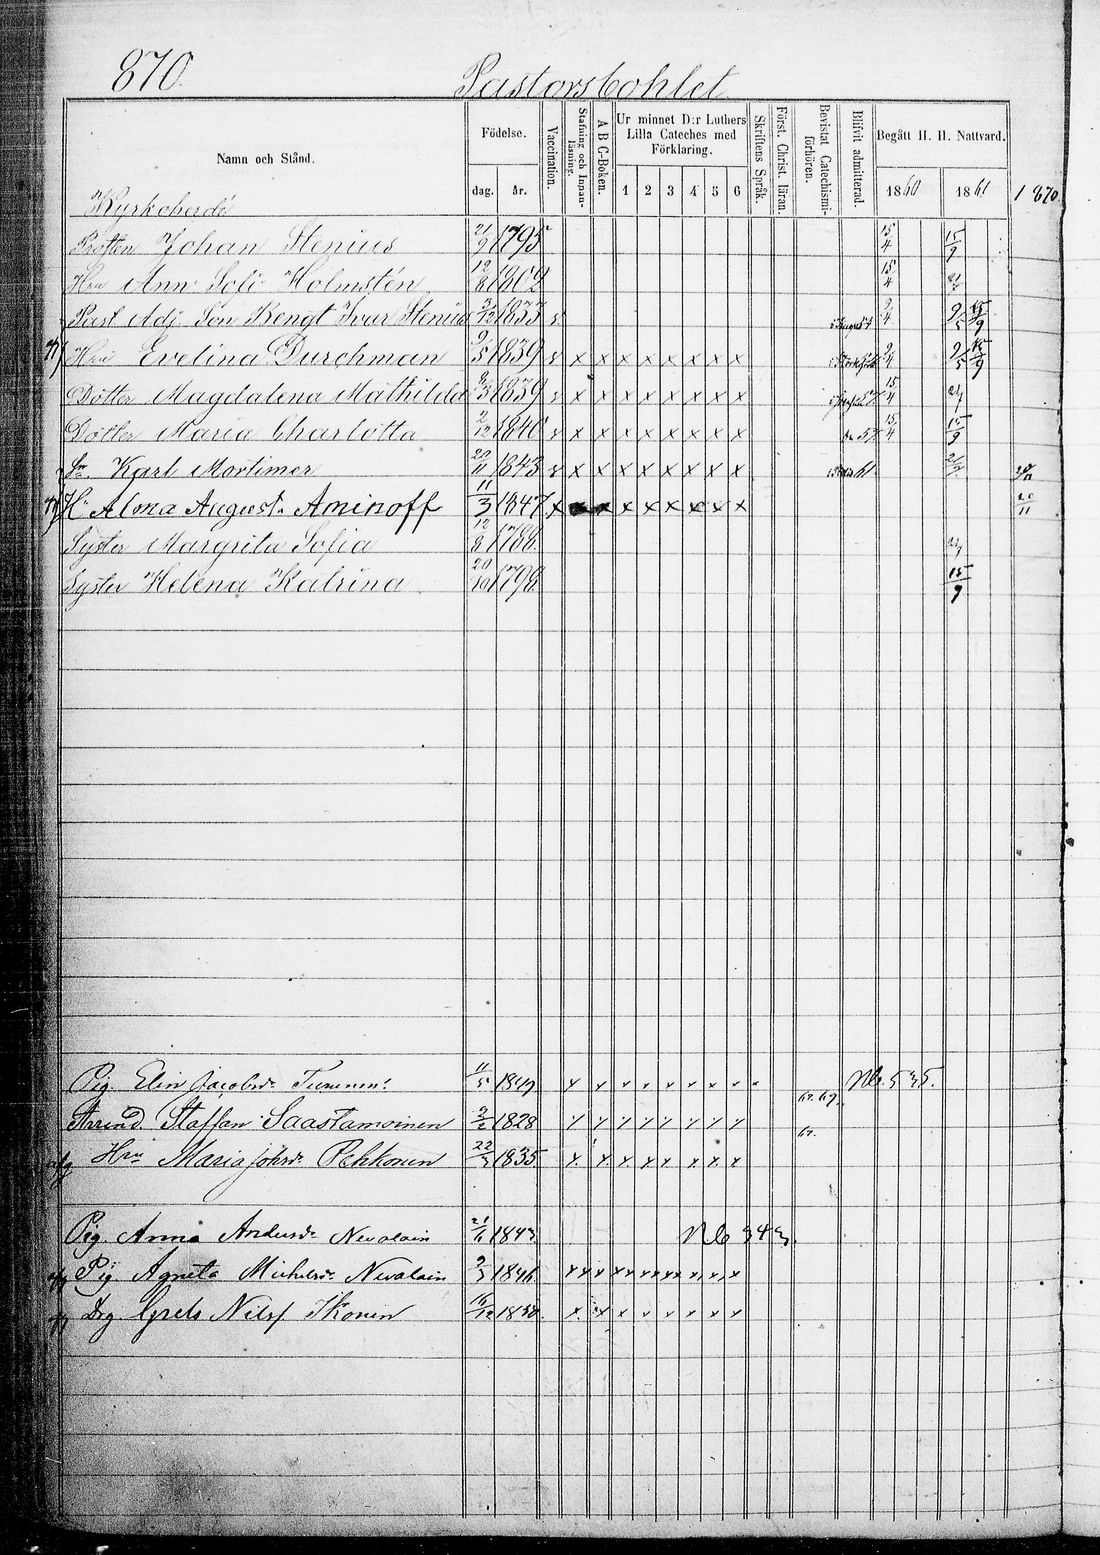 870.
Pastorsbohlet
Namn och Stånd. Födelse. Vaccination. Stafning och Innan-läsning. A B C-Boken. Ur minnet D:r Luthers Lilla Cateches med Förklaring. Skriftens Språk. Först. Christ. läran. Bevistat Catechismi-förhören. Blifvit admitterad. Begått H. H. Nattvard.
dag. år. 1 2 3 4 5 6 1860 1861 1870
Kyrkoherde
Prosten Johan Stenius 21/9 1795 15/4 15/9
Hru Ann Sofi Holmstén 12/8 1802 15/4
Past Adj Son Bengt Ivar Stenius 1833 s 2/4 9/5 15/9
Hru Evelina Durchman 9/5 1839 s x x x x x x x x 2/4 9/5 15/9
Dotter Magdalena Mathilda 1839 s x x x x x x x x 15/4
Dotter Maria Charlotta 2/12 1840 s x x x x x x x x 57 15/4 15/9
Sn Karl Mortimer 20/11 1843 s x x x x x x x x 61
H. Alma August. Aminoff 11/3 1847 x x x x x x x 20/11
Syster Margrita Sofia 12/8 1788.
Syster Helena Katrina 20/10 1798. 15/9
Pig. Elin Jacobsdr 11/5 x x x x x x x x No. 535.
67. 69.
Arrend. Staffan Saastamoinen 2/2 1828 x x x x x x x x
67.
Hru Maria Johsdr Pekkonen 22/3 1835 x x x x x x x x
Pig. Anna Andersdr Nevalain 21/6 1843 No 343.
Pig. Agneta Michelsdr Nevalain 2/3 1846 x x x x x x x x x x x x
Drg. Nilsf Ikonen 16/12 1850. x x x x x x x x